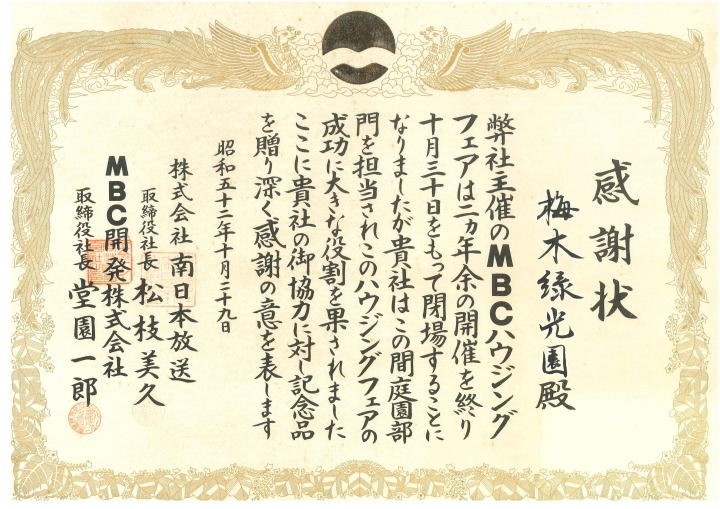 感謝状
梅木緑光園殿
弊社主催のMBCハウジング
フェアは二ヵ年余の開催を終り
十月三十日をもって閉場することに
なりましたが貴社はこの間庭園部
門を担当されこのハウジングフェアの
成功に大きな役割を果されました
ここに貴社の御協力に対し記念品
を贈り深く感謝の意を表します
昭和五十二年十月二十九日
株式会社南日本放送
取締役社長 松枝美久
MBC開発株式会社
取締役社長 堂園一郎